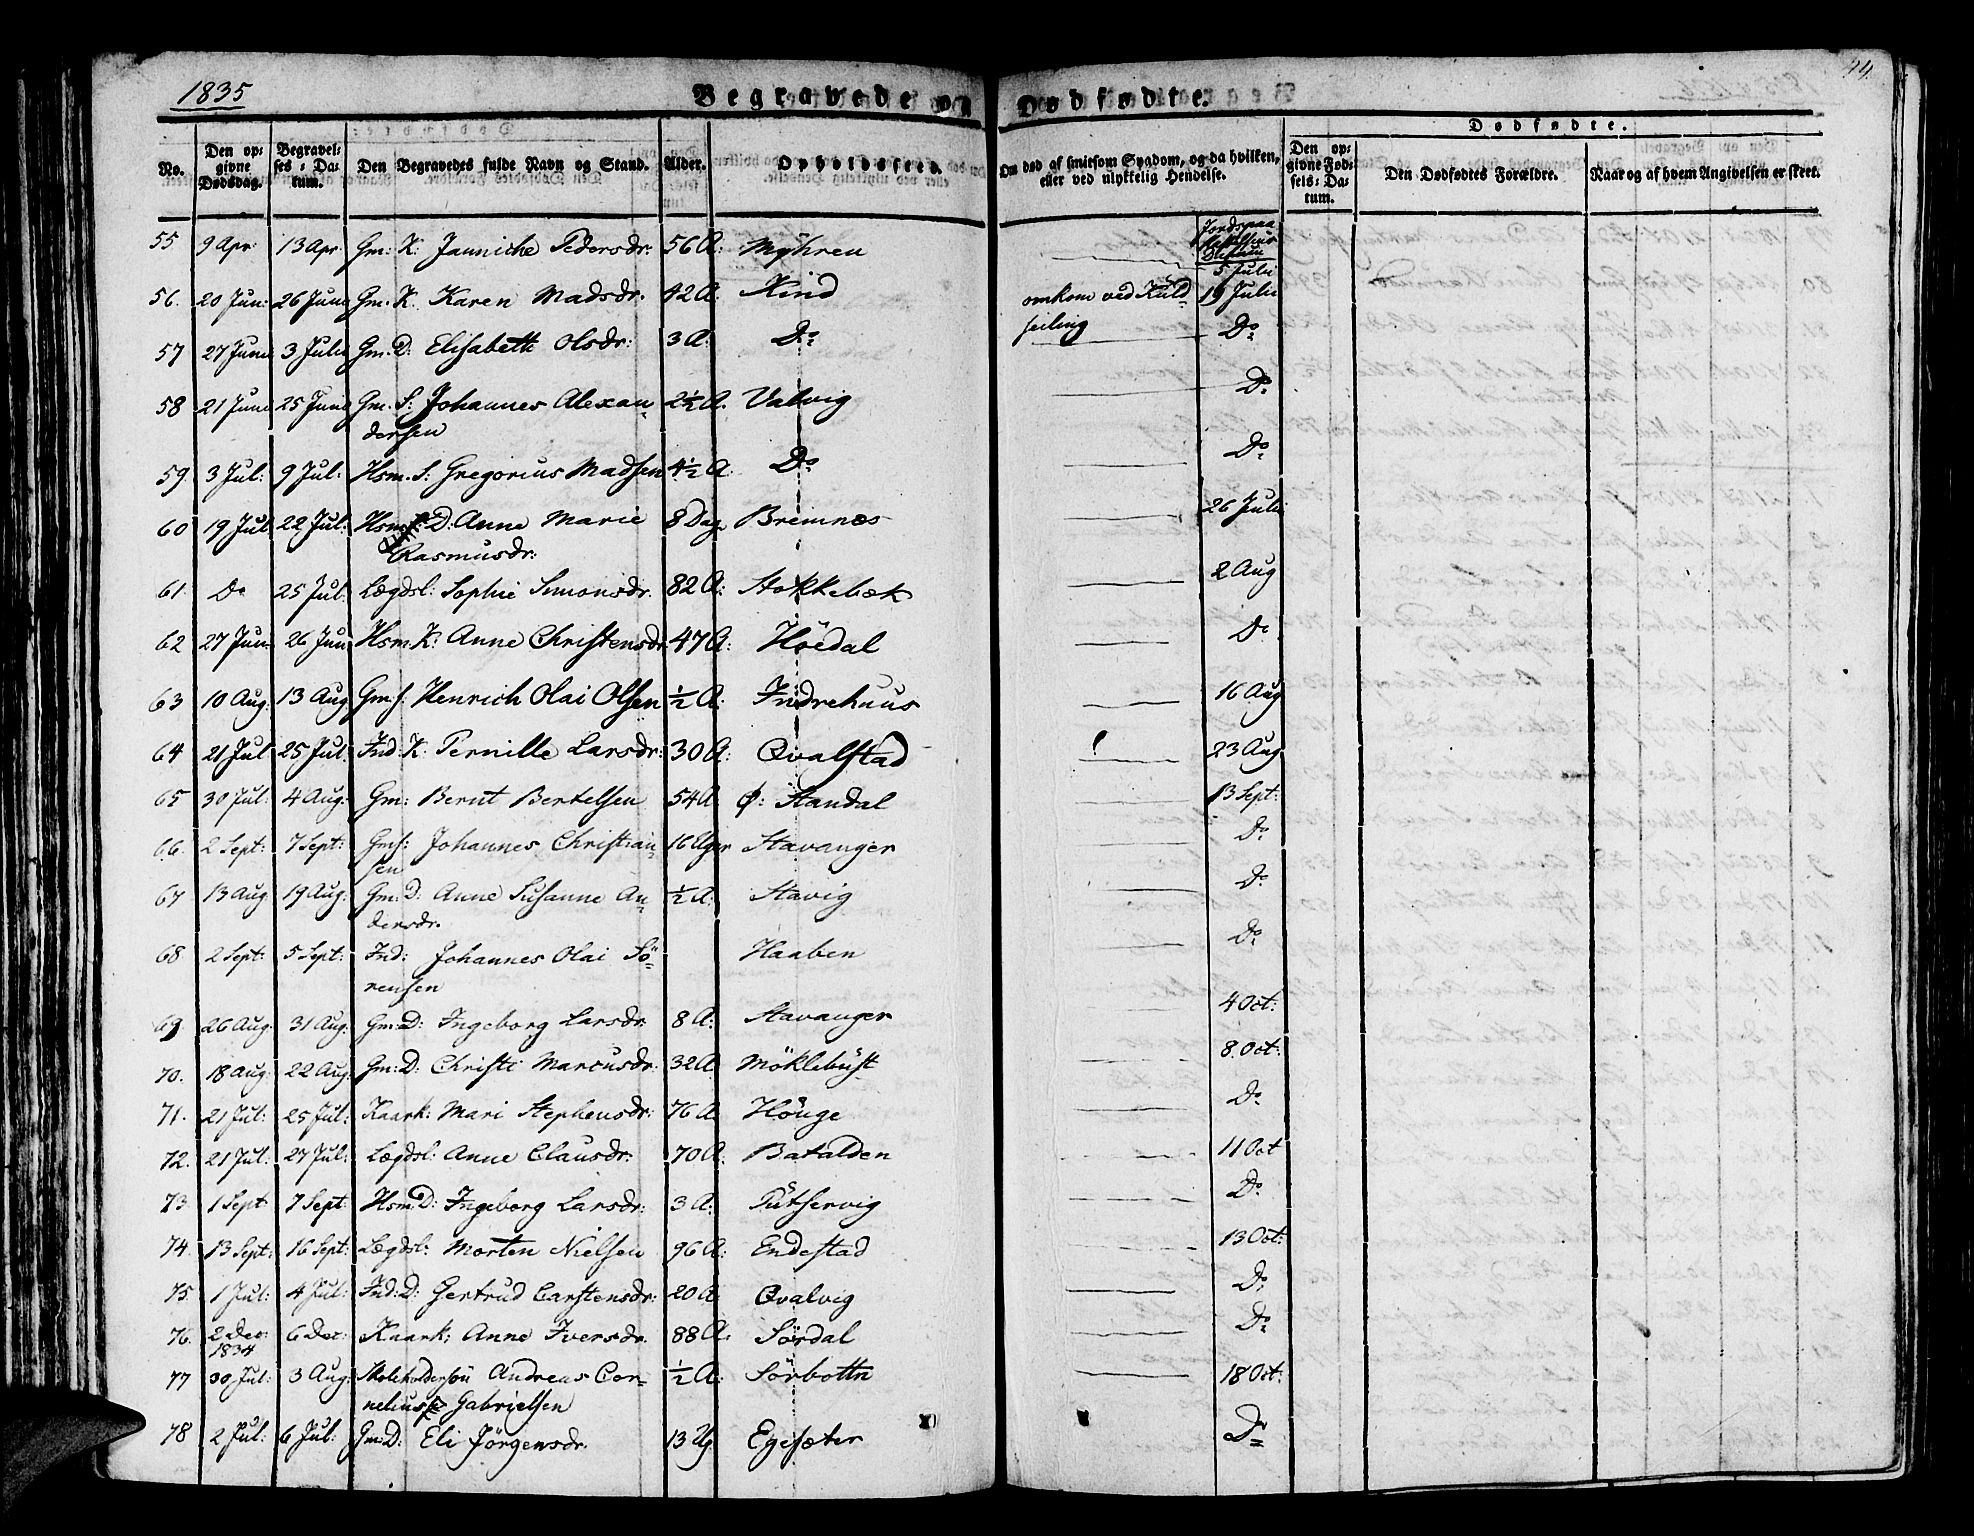 1835
44
Begravede og Dødfødte.
Dødfødte.
No.
Den op-
givne
Dødsdag.
Begravel-
ses-Da-
tum.
Den Begravedes fulde Navn og Stand.
Alder.
Opholdssted.
Om død af smitsom Sygdom, og da hvilken,
eller ved ulykkelig Hendelse.
Den op-
givne Fød-
sels-Da-
tum.
Den Dødfødtes Forældre.
Naar og af hvem Angivelsen er skeet.
Jordspaa
kastelsens
Datum
55 9 Apr: 13 Apr Gm: K: Jannicke Pedersdr: 56 A: Myhren 5 Juli
56. 20 Jun: 26 Juni Gm. K. Karen Madsdr. 42 A: Kind omkom ved Kuld 19 Juli
seiling
57 27 Juni 3 Julii Gm: D: Elisabeth Olsdr: 3 A: Do Do
58 21 Juni 25 Juni Gm. S: Johannes Alexan 2½ A. Valvig Do
dersen
59. 3 Jul: 9 Jul: Hsm. S: Gregorius Madsen 4½ A: Do Do
60 19 Jul 22 Jul: Hsm D: Anne Marie 8 Dag Bremnes 26 Juli
Rasmusdr:
61. Do 25 Jul: Lægdsl: Sophie Simonsdr. 82 A: Stokkebæk 2 Aug
62 27 Jun 26 Jun Hsm. K: Anne Christensdr 47 A: Höedal Do
63 10 Aug: 13 Aug Gm: s. Henrich Olai Olsen ½ A: Indrehuus 16 Aug
64 21 Jul 25 Jul Ind: K. Pernille Larsdr: 30 A: Qvalstad 23 Aug
65 30 Jul: 4 Aug: Gm: Bernt Bertelsen 54 A Ø: Standal 13 Sept:
66. 2 Sept: 7 Sept: Gms: Johannes Christian 16 Uger Stavanger Do
sen
67 13 Aug 19 Aug: Gm: D: Anne Susanne An ½ A: Stavig Do
dersdr.
68 2 Sept: 5 Sept: Ind: Johannes Olai Sö Haaben Do
rensen
69. 26 Aug: 31 Aug: Gm: D: Ingeborg Larsdr: 8 A: Stavanger 4 Oct:
70. 18 Aug: 22 Aug Gm: D: Christi Marcusdr: 32 A Möklebust 8. Oct:
71. 21 Jul: 25 Jul: Kaark: Mari Stephensdr: 76 A Höuge Do
72. 21 Jul: 27 Jul: Lægdsl: Anne Clausdr: 70 A: Batalden 11 Oct
73 1 Sept 7 Sept Hsm: D: Ingeborg Larsdr: 3 A: Do
74. 13 Sept: 16 Sept: Lægdsl: Morten Nielsen 96 A: Endestad 13 Oct:
75. 1 Jul: 4 Jul: Ind: D: Gertrud Carstensdr: 20 A: Qvalvig Do
76. 2 Dec: 6 Dec: Kaark: Anne Iversdr. 88 A: Sördal Do
1834
77 30 Jul: 3 Aug: Skoleholdersön Andreas Cor- ½ A: Sörbottn 18 Oct:
nelius Gabrielsen
78 2 Jul: 6 Jul: Gm: D: Eli Jörgensdr. 13 Ug Egesæter Do